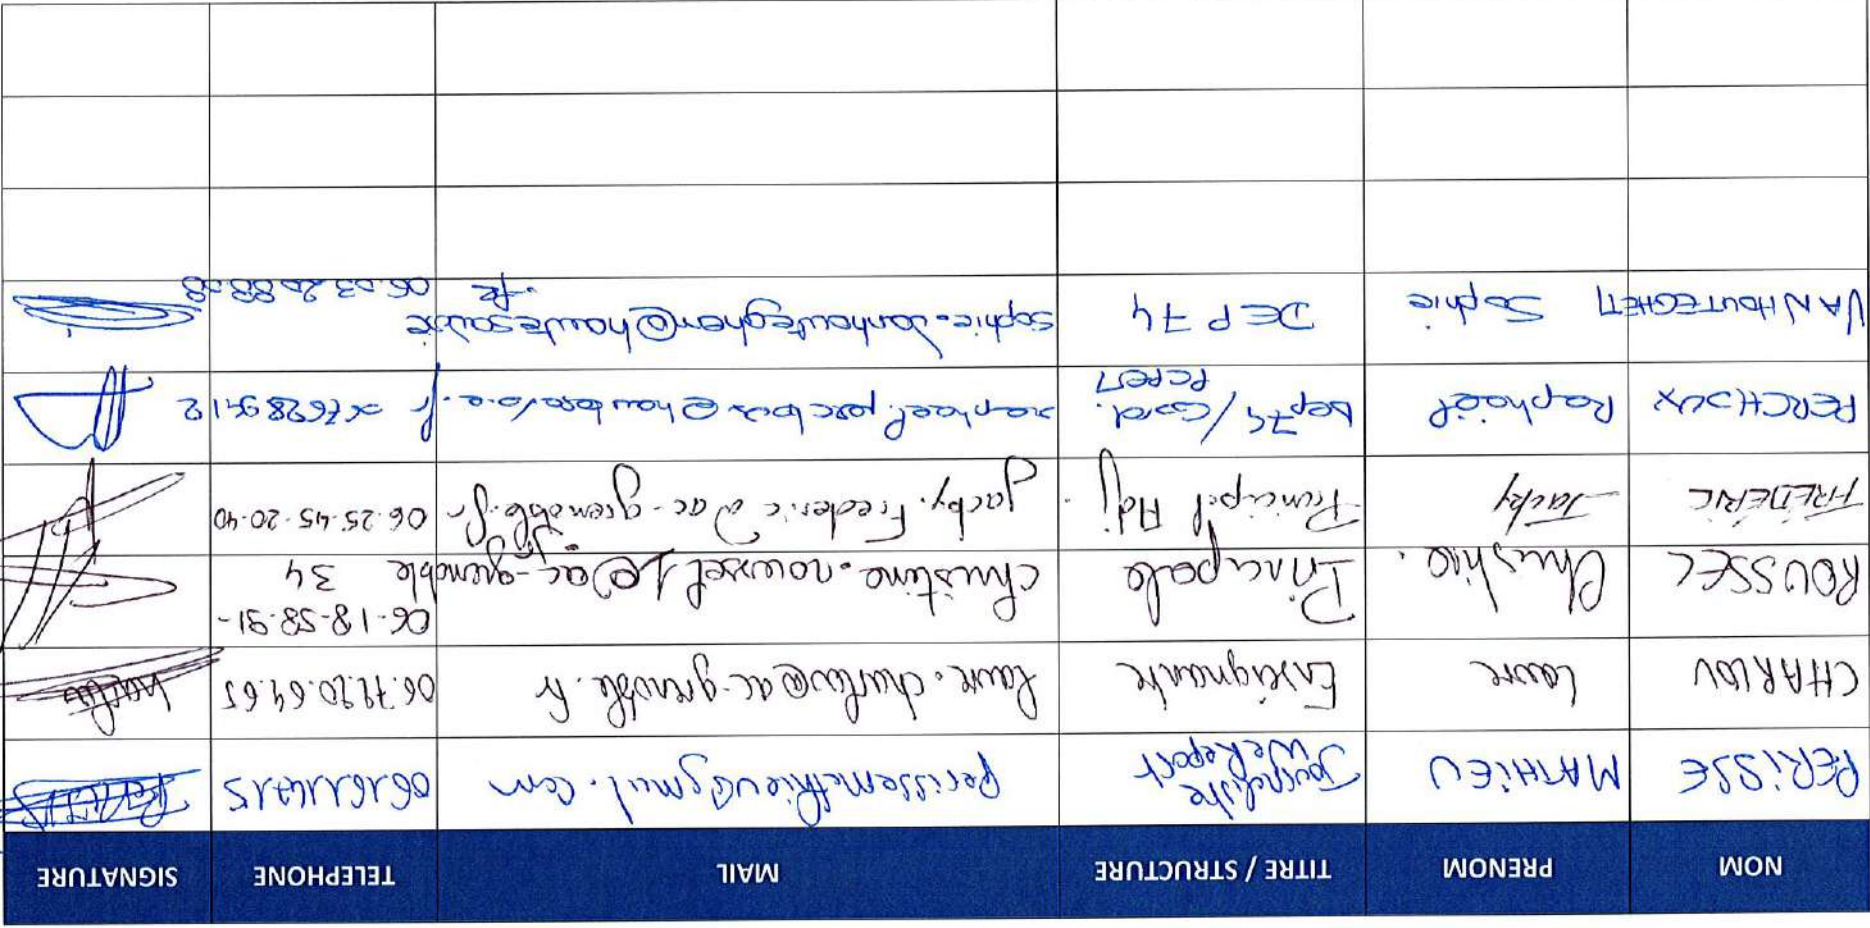 NOM PRENOM TITRE / STRUCTURE MAIL TELEPHONE SIGNATURE
PERISSE MATHIEU Journaliste WeReport perissemathieu@gmail.com
CHARLOU Laure Enseignante laure.charlou@ac-grenoble.fr 06.72.20.64.65
ROUSSEL Christine. Principale christine.roussel1@ac-grenoble.fr 06-18-58-91-34
FREDERIC Jacky Principal Adj. jacky.frederic@ac-grenoble.fr 06-25-45-20-40
PERCHOUX Raphaël Dep74/Coord. raphael.perchoux@hautesavoie.fr 0762899412
VANHOUTEGHEM Sophie DEP74 sophie.vanhouteghem@hautesavoie.fr 06.03.20.88.08